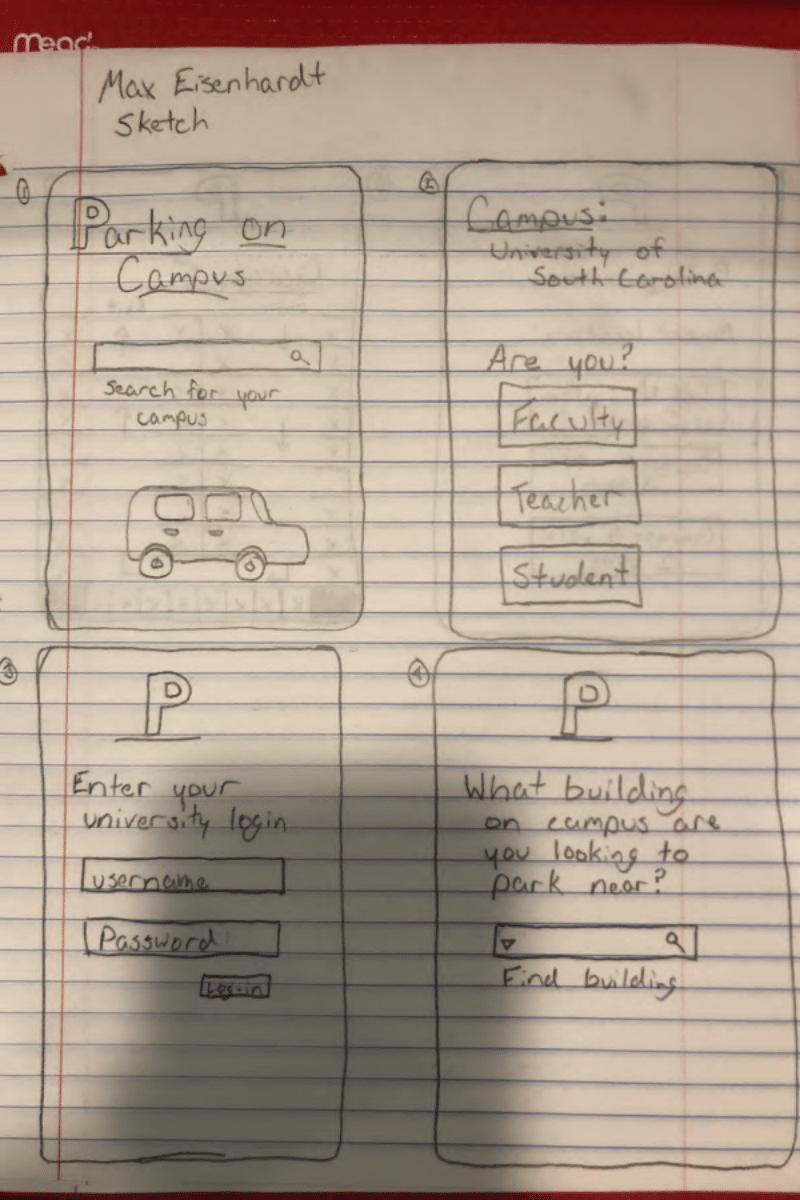 Mead
Max Eisenhardt
Sketch
①
Parking on
Campus
Search for your
campus
②
Campus:
University of
South Carolina
Are you?
Faculty
Teacher
Student
③
P
Enter your
university login
username
Password
Log-in
④
P
What building
on campus are
you looking to
park near?
Find building